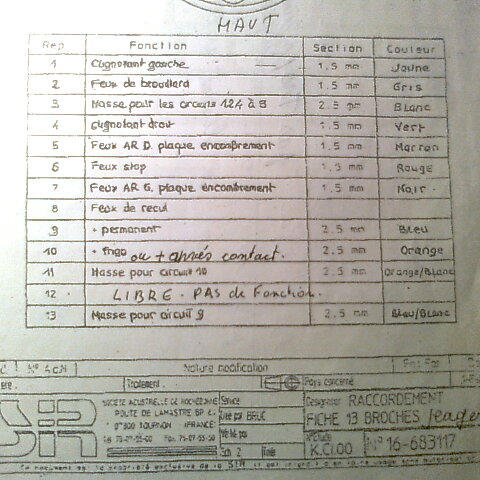 HAUT
Rep Fonction Section Couleur
1 Clignotant gauche 1.5 mm Jaune
2 Feux de brouillard 1.5 mm Gris
3 Masse pour les circuits 1 2 4 à 8 2.5 mm Blanc
4 Clignotant droit 1.5 mm Vert
5 Feux AR D. plaque encombrement 1.5 mm Marron
6 Feux stop 1.5 mm Rouge
7 Feux AR G. plaque encombrement 1.5 mm Noir
8 Feux de recul
9 + permanent 2.5 mm Bleu
10 + frigo ou + après contact. 2.5 mm Orange
11 Masse pour circuit 10 2.5 mm Orange/Blanc
12 LIBRE. PAS de Fonction.
13 Masse pour circuit 9 2.5 mm Bleu/Blanc
Nature modification
Traitement Pays concerné
SiR
SOCIETE INDUSTRIELLE DE ROCHEBONNE
ROUTE DE LAMASTRE BP
07300 TOURNON (FRANCE)
Service
Designation RACCORDEMENT
FICHE 13 BROCHES
K.C1.00 N° 16-683117
Ce document est la propriété exclusive de la SIR